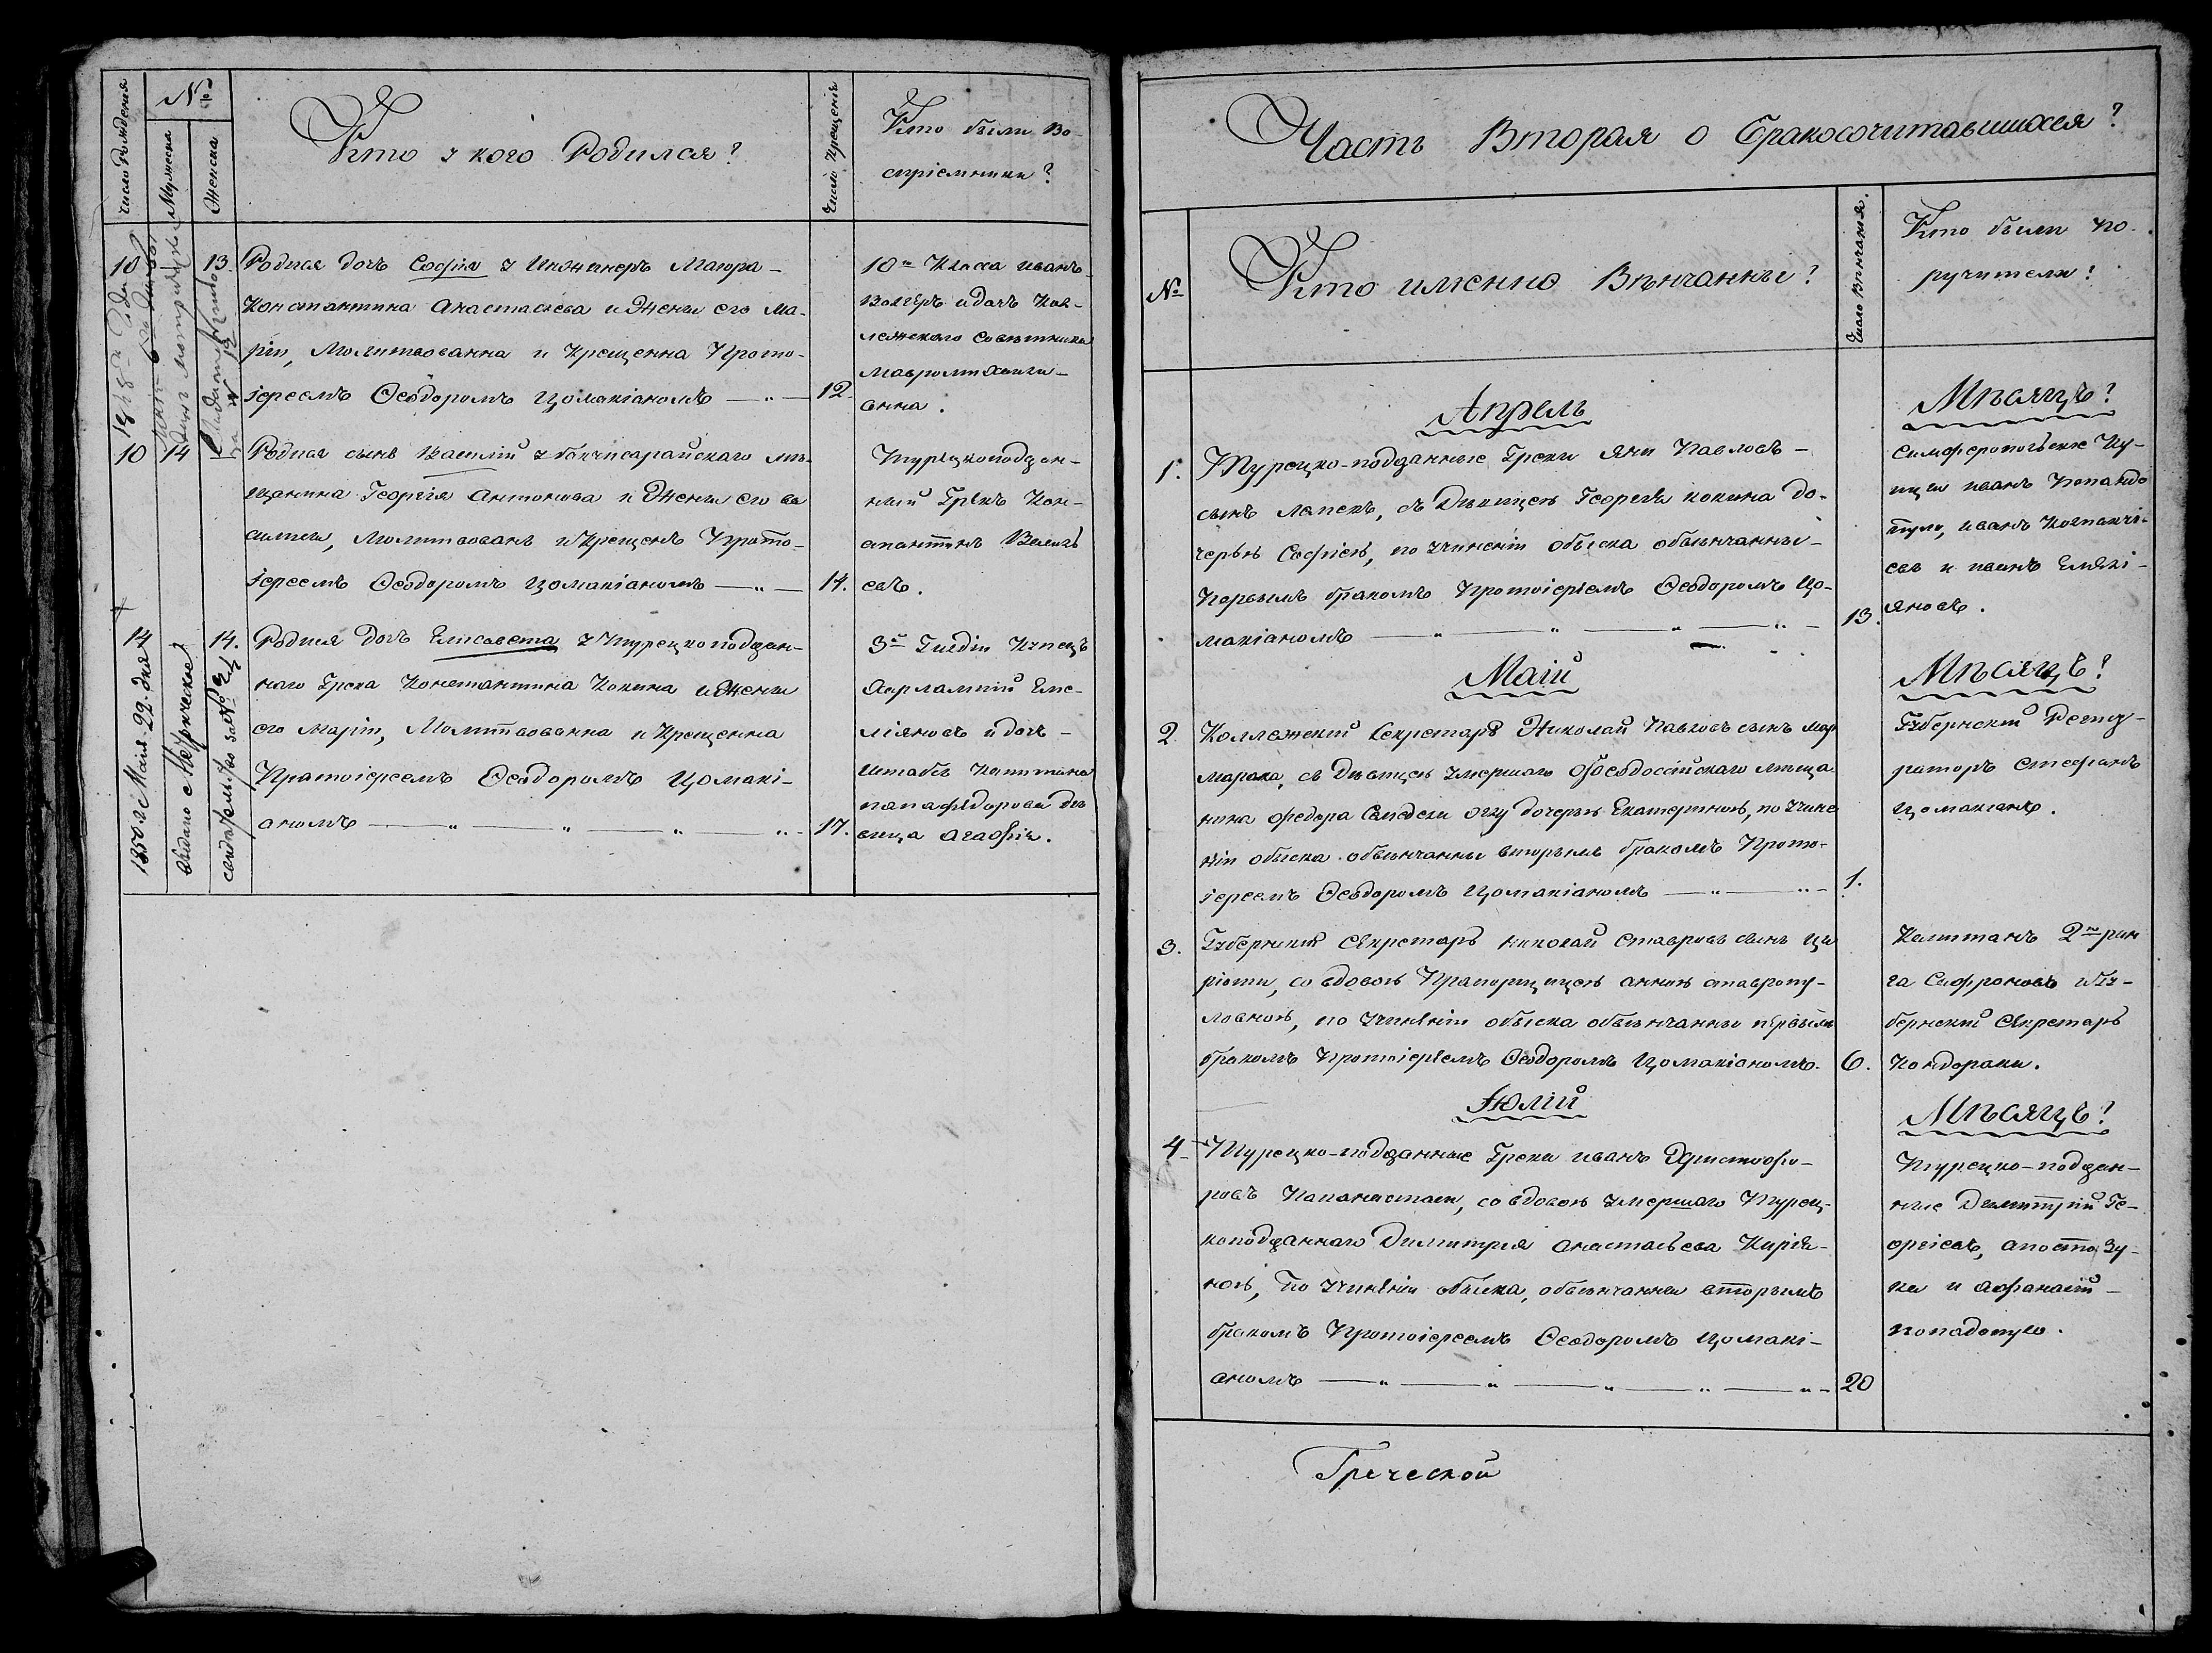 число Рожденія
№
Мужеска
Женска
Кто у кого Родился?
Число Крещенія
Кто были Во-
спріемники?
10
13.
Родися дочь Софія у Инженеръ Маіора
Константина Анастасьева и Жены его Ма-
ріи, Молитвованна и Крещенна Прото-
іереемъ Ѳеодоромъ Цомакіаномъ
12.
10го Класса Иванъ
и дочь Кол-
лежскаго Совѣтника
Анна.
10
14
Родися сынъ Василій у бахчисарайскаго мѣ-
щанина Георгія Антонова и Жены его Ва
силисы, Молитвованъ и Крещенъ Прото-
іереемъ Ѳеодоромъ Цомакіаномъ
14.
Турецкоподдан-
ный Грекъ Кон-
стантинъ
евъ.
14
14.
Родися дочь Елисавета у Турецкоподдан-
наго Грека Константина Кокина и Жены
его Маріи, Молитвованна и Крещенна
Протоіереемъ Ѳеодоромъ Цомакі-
аномъ
17.
3й Гилдіи Купецъ
Харлампій Еме-
ліяновъ и дочь
Штабсъ Капитана
Папафедорова дѣ
вица Агафія.
1850 г. Маія 22. дня
Выдано Метрическое
свидѣтельство за №
Часть Вторая о Бракосочитавшихся?
№
Кто именно Вѣнчанны?
Число Вѣнчанія.
Кто были по-
ручители?
Апрель
Мѣсяцъ?
1.
Турецко-подданные Греки Яни Павловъ
сынъ Лапекъ, съ Дѣвицею Георгія Кокина до-
черью Софіею, по учиненіи обыска обвѣнчанны
Первымъ бракомъ Протоіереемъ Ѳеодоромъ Цо-
макіаномъ
13.
Симферопольские Ку-
пцы Иванъ Попандо
пуло, Иванъ
евъ и Иванъ Емелі-
яновъ.
Маій
Мѣсяцъ?
2
Коллежский Секретарь Николай Павловъ сынъ Мар
марака, съ Дѣвицею умершаго Ѳеодосійскаго мѣща
нина Федора дочерью Екатериною, по учине
ніи обыска обвѣнчанны вторымъ бракомъ Прото-
іереемъ Ѳеодоромъ Цомакіаномъ
1.
Губернский Регист-
раторъ Стефанъ
Цомакіанъ.
3.
Губернский Секретарь Николай Ставровъ сынъ Ци
ріоти, со вдовою Прапорщицею Анною Ставропу-
ловною, по учиненіи обыска обвѣнчанны первымъ
бракомъ Протоіереемъ Ѳеодоромъ Цомакіаномъ.
6.
Капитанъ 2го ран
га Сафроновъ и Гу-
бернский Секретарь
Кондораки.
Іюлій
Мѣсяцъ?
4
Турецко-подданные Греки Иванъ Христофо-
ровъ Папанастасъ, со вдовою умершаго Турец-
коподданнаго Димитрія Анастасьева Киріа-
ною, По учиненіи обыска, обвѣнчанны вторымъ
бракомъ Протоіереемъ Ѳеодоромъ Цомакі-
аномъ
20
Турецко-поддан-
ные Димитрій Ге-
оргіевъ, Апосто Зу-
ки и Афанасій
попадопуло.
Греческой